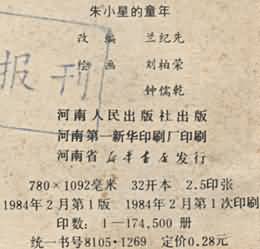 朱小星的童年
改 编 兰纪先
绘 画 刘柏荣
钟儒乾
报刊
河南人民出版社出版
河南第一新华印刷厂印刷
河南省新华书店发行
780×1092毫米 32开本 2.5印张
1984年2月第1版 1984年2月第1次印刷
印数：1—174,500册
统一书号8105·1269 定价0.28元